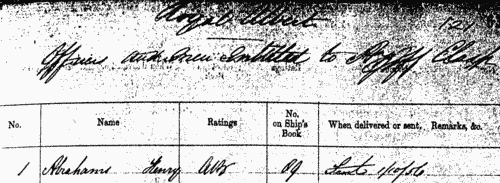 Royal Albert
Officers and Men Entitled to Azoff Clasp
No. Name Ratings No. on Ship's Book When delivered or sent, Remarks, &c.
1 Abrahams Henry AB 89 Sent